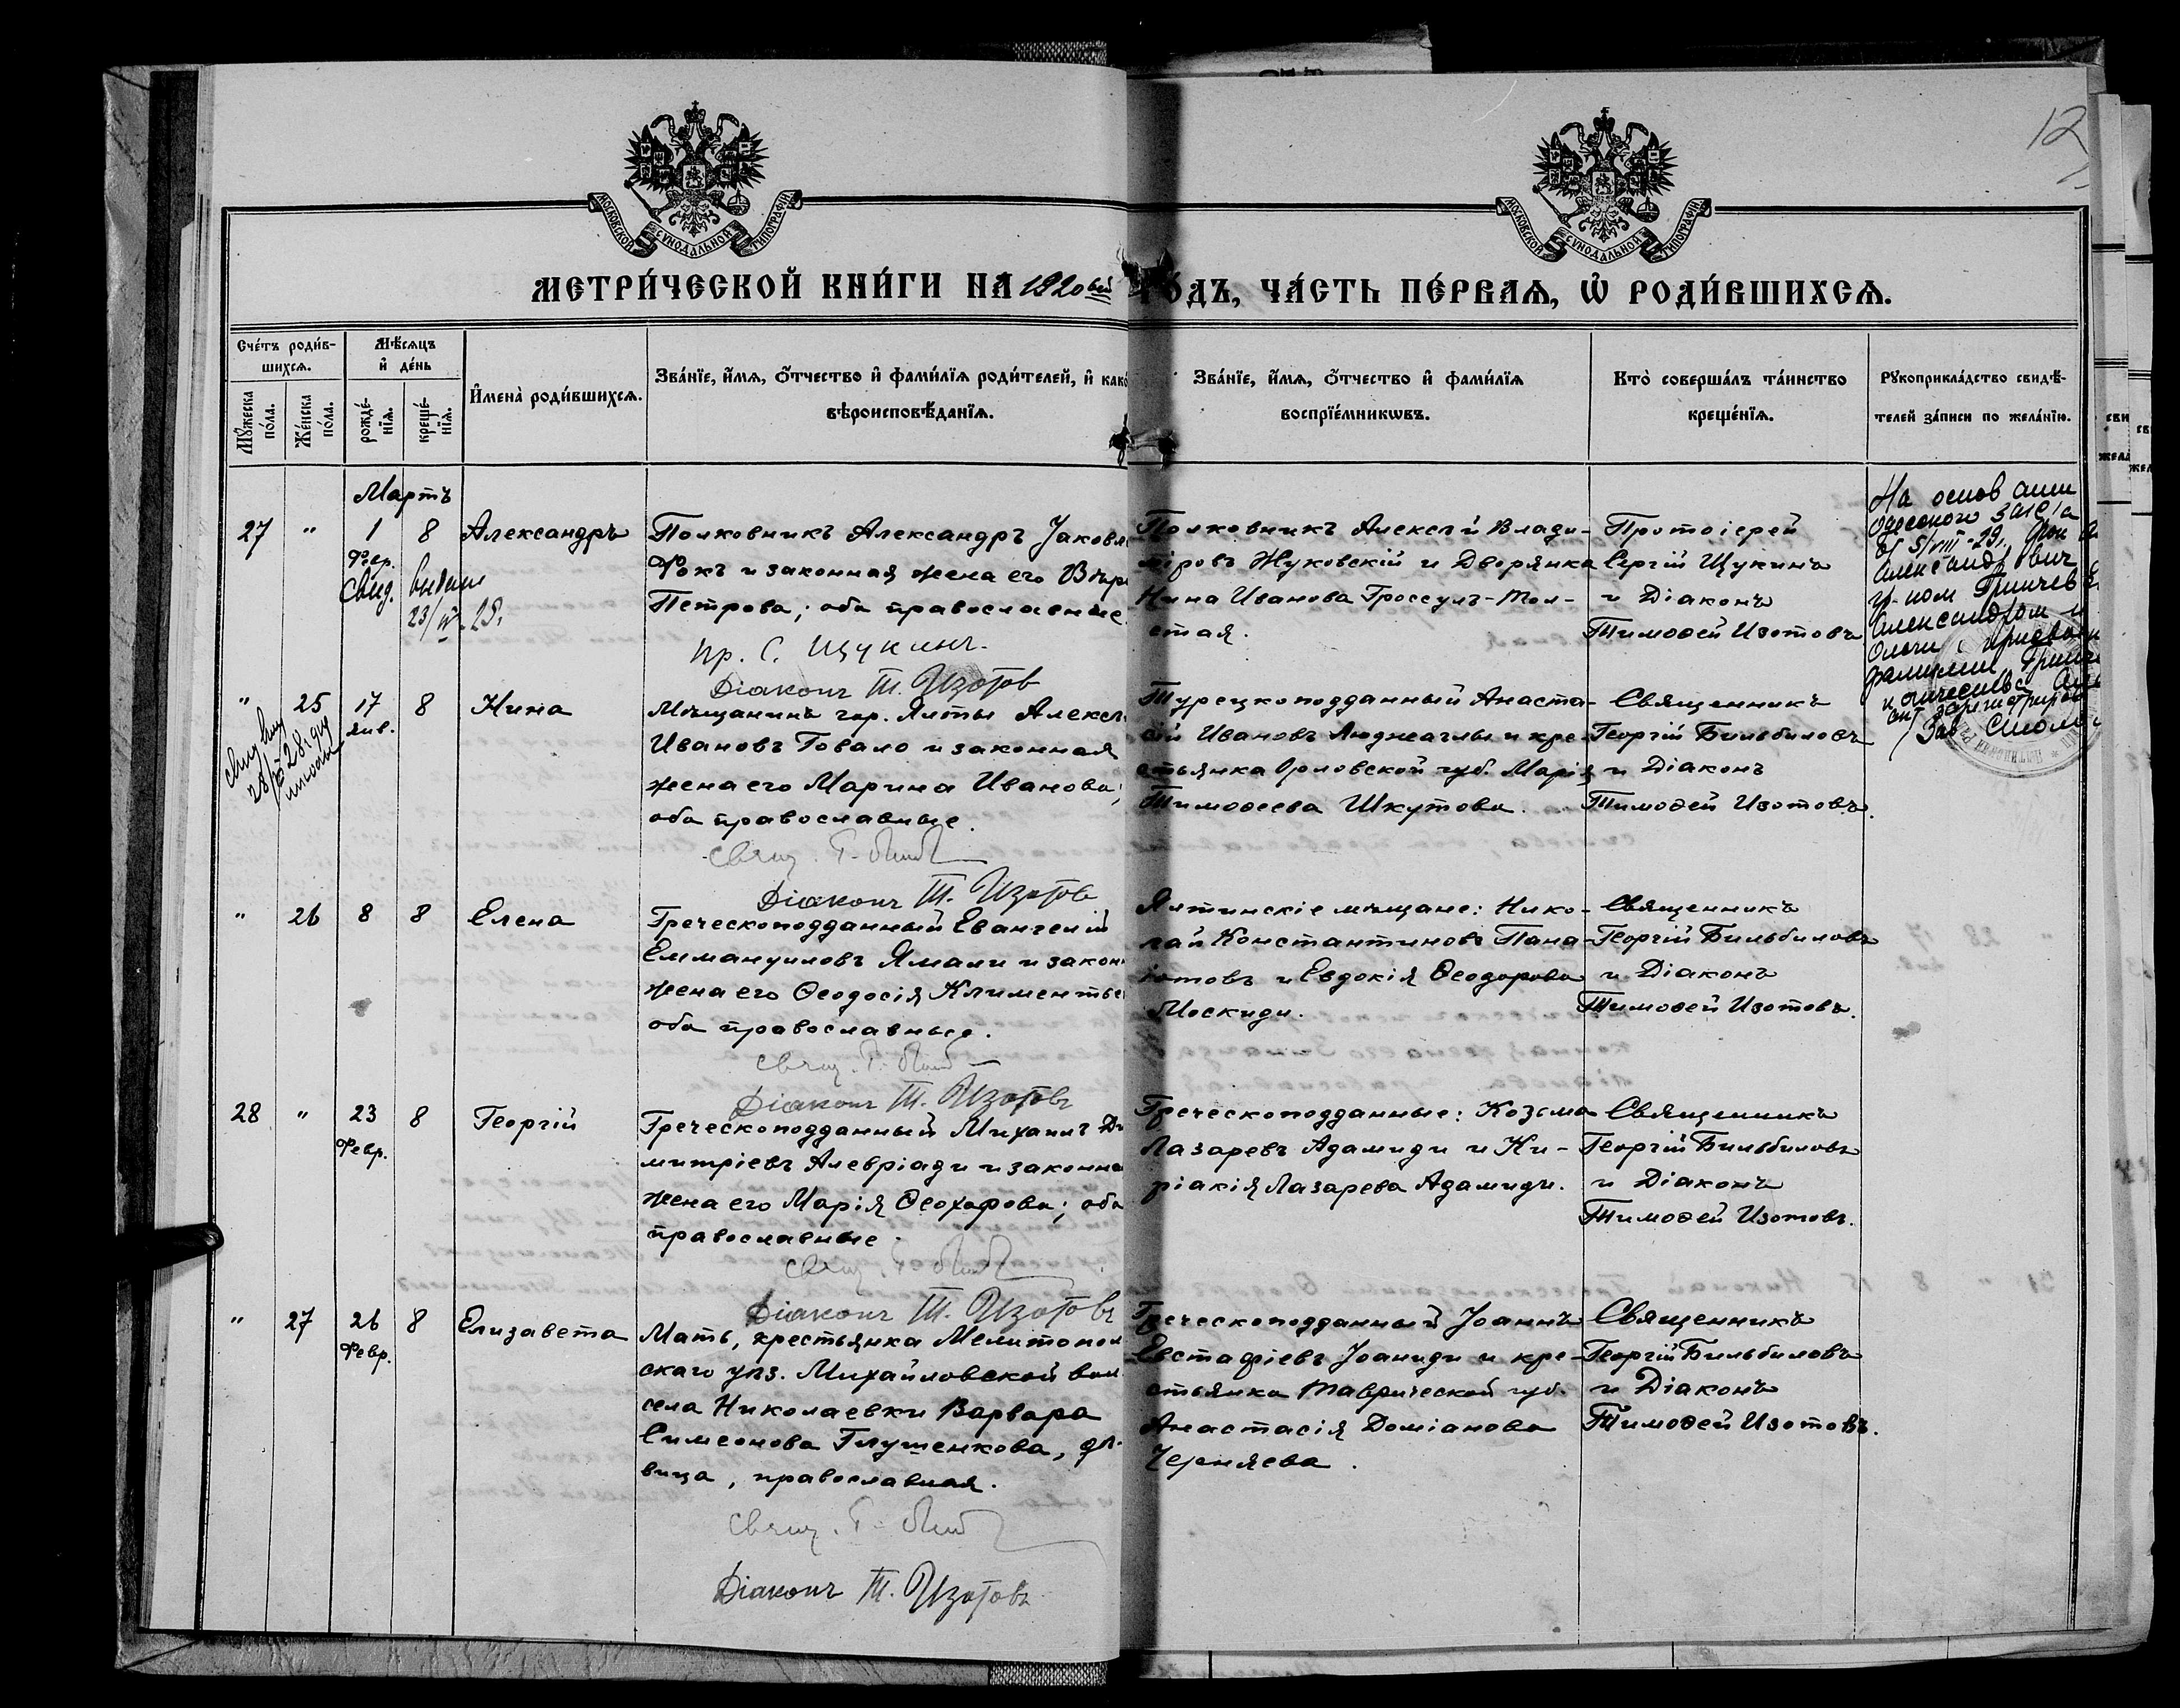 12
МОСКОВСКОЙ СѴНОДАЛЬНОЙ ТИПОГРАФІИ
МОСКОВСКОЙ СѴНОДАЛЬНОЙ ТИПОГРАФІИ
МЕТРИ́ЧЕСКОЙ КНИ́ГИ НА 1920ый ГО́ДЪ, ЧА́СТЬ ПЕ́РВАѦ, Ѽ РОДИ́ВШИХСѦ.
Сче́тъ роди́в-
шихсѧ.
Мꙋ́жеска по́ла.
Же́нска по́ла.
Мѣ́сѧцъ
и҆ де́нь
рожде́-
нїѧ.
креще́-
нїѧ.
И҆мена̀ роди́вшихсѧ.
Зва́нїе, и҆́мѧ, ѻ҆́тчество и҆ фами́лїѧ роди́телей, и҆ како
вѣроисповѣ́данїѧ.
Зва́нїе, и҆́мѧ, ѻ҆́тчество и҆ фами́лїѧ
воспрїе́мникѡвъ.
Кто̀ соверша́лъ та́инство
креще́нїѧ.
Рꙋкоприкла́дство свидѣ́-
телей за́писи по жела́нїю.
Мартъ
27 " 1 8 Александръ
Фер.
Свид. выдано
23/IV-28.
Полковникъ Александръ Яковл
Фокъ и законная жена его Вѣра
Петрова; оба православные.
Пр. С. Щукинъ.
Діаконъ Т. Изотов
Полковникъ Алексѣй Влади-
міровъ Жуковскій и Дворянка
Нина Иванова Гроссулъ-Тол-
стая.
Протоіерей
Сергій Щукинъ
и Діаконъ
Тимоѳей Изотовъ
На основании
Одесского загса
от 5/VIII-29.
Александрович
гр-ном Гринчев
Александром и
фамилии
и отчество
Зав
" 25 17 8 Нина
янв.
Мѣщанинъ гор. Ялты Алексѣ
Ивановъ Товало и законная
жена его Марина Иванова;
оба православные.
Свящ. Г.
Діаконъ Т. Изотов
Турецкоподданный Анаста-
сій Ивановъ Люджеаглы и кре-
стьянка Орловской губ. Марія
Тимоѳеева Шкутова.
Священникъ
Георгій Бильбиловъ
и Діаконъ
Тимоѳей Изотовъ.
" 26 8 8 Елена
Греческоподданный Евангелій
Еммануиловъ Ямали и закон
жена его Ѳеодосія Климентье
оба православные.
Свящ. Г.
Діаконъ Т. Изотовъ
Ялтинскіе мѣщане: Нико-
лай Константиновъ Пана-
іотовъ и Евдокія Ѳеодорова
Москиди.
Священникъ
Георгій Бильбиловъ
и Діаконъ
Тимоѳей Изотовъ.
28 " 23 8 Георгій
Февр.
Греческоподданный Михаилъ Ди
митріевъ Алевріади и законна
жена его Марія Ѳеохарова; оба
православные.
Свящ. Г.
Діаконъ Т. Изотовъ
Греческоподданные: Козьма
Лазаревъ Адамиди и Ки-
ріакія Лазарева Адамиди.
Священникъ
Георгій Бильбиловъ
и Діаконъ
Тимоѳей Изотовъ.
" 27 26 8 Елизавета
Февр.
Мать, крестьянка Мелитополь
скаго уѣз. Михайловской вол.
села Николаевки Варвара
Симеонова Глушенкова, дѣ-
вица, православная.
Свящ. Г.
Діаконъ Т. Изотовъ
Греческоподданный Іоаннъ
Евстафіевъ Іоаниди и кре-
стьянка Таврической губ.
Анастасія Доміанова
Черняева.
Священникъ
Георгій Бильбиловъ
и Діаконъ
Тимоѳей Изотовъ.